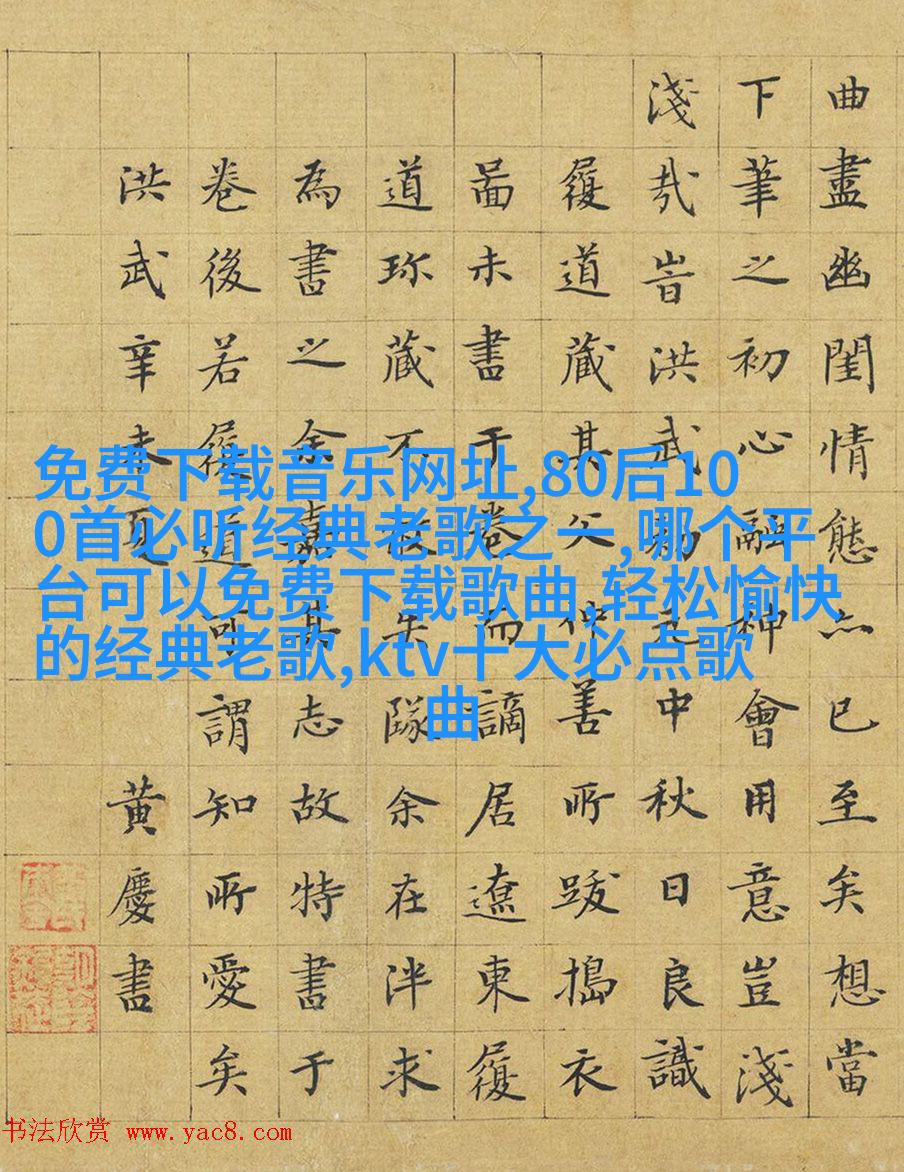 曲盡幽閨情態亦已至矣想當
下筆之初心融神會用意豈淺
淺哉旹洪武初元中秋日良識
履道藏其父仲善所跋搗衣
啚未書于卷而謫居遼東履
道珎藏不敢失隊余在泮求
為書之余嘉其志故特書于
卷後若履道可謂知所愛矣
洪武辛未夏 黃慶書
免费下载音乐网址,80后10
0首必听经典老歌之一,哪个平
台可以免费下载歌曲,轻松愉快
的经典老歌,ktv十大必点歌
曲
书法欣赏 www.yac8.com